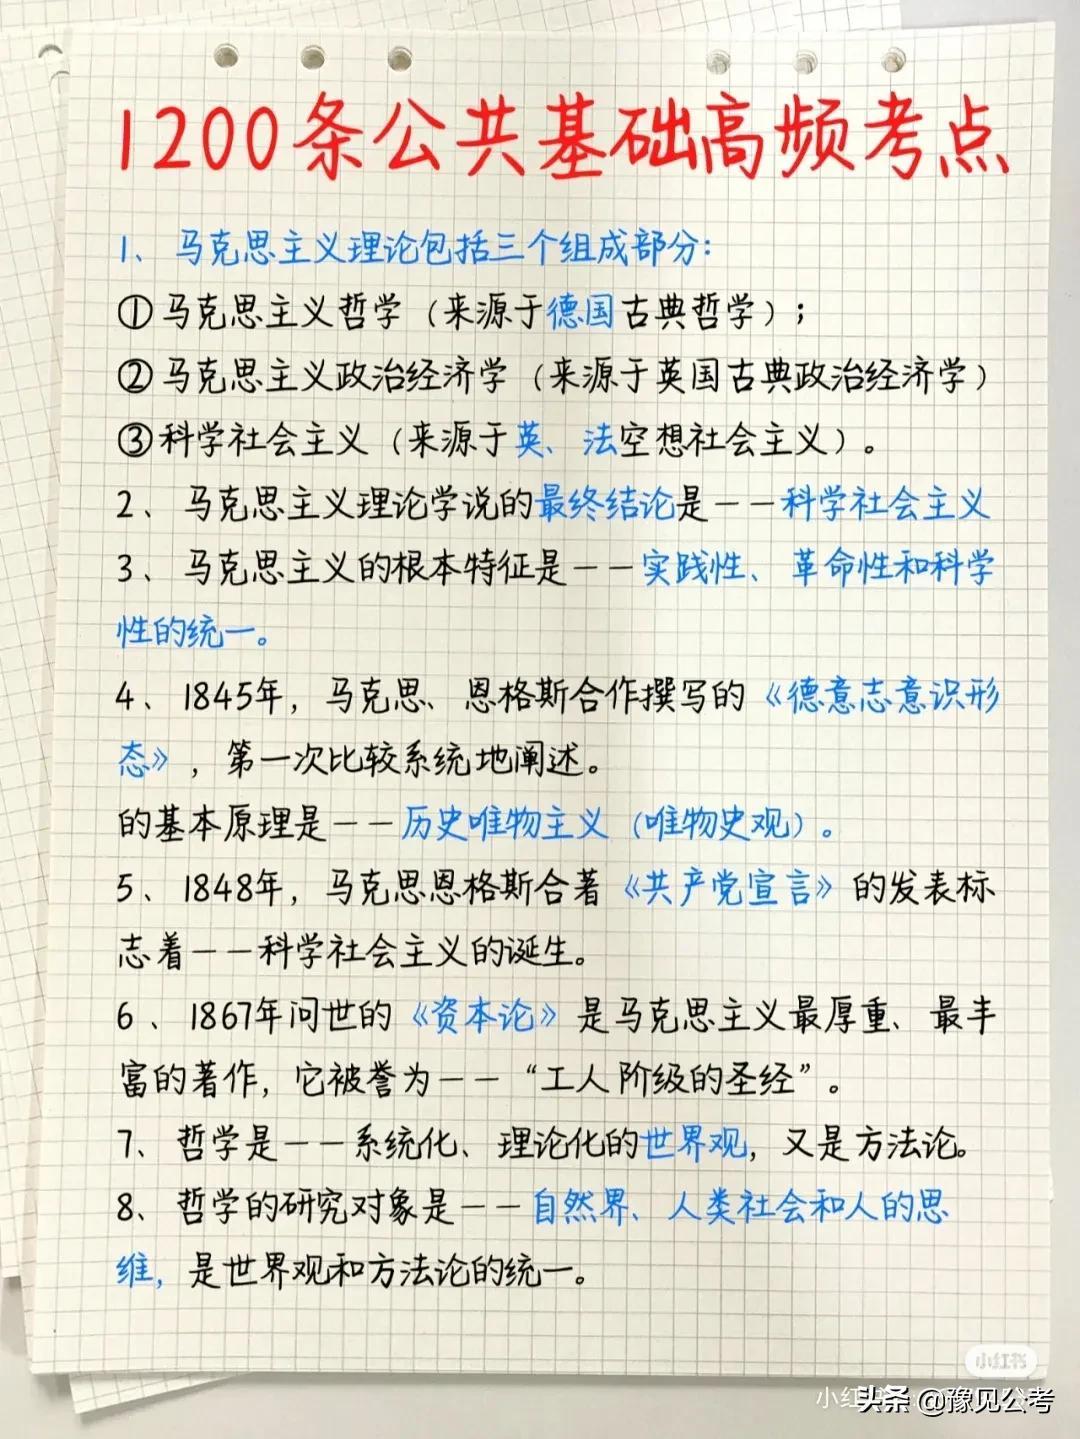 1200条公共基础高频考点
1、马克思主义理论包括三个组成部分:
①马克思主义哲学（来源于德国古典哲学）；
②马克思主义政治经济学（来源于英国古典政治经济学）
③科学社会主义（来源于英、法空想社会主义）。
2、马克思主义理论学说的最终结论是——科学社会主义
3、马克思主义的根本特征是——实践性、革命性和科学
性的统一。
4、1845年，马克思、恩格斯合作撰写的《德意志意识形
态》，第一次比较系统地阐述。
的基本原理是——历史唯物主义（唯物史观）。
5、1848年，马克思恩格斯合著《共产党宣言》的发表标
志着——科学社会主义的诞生。
6、1867年问世的《资本论》是马克思主义最厚重、最丰
富的著作，它被誉为——“工人阶级的圣经”。
7、哲学是——系统化、理论化的世界观，又是方法论。
8、哲学的研究对象是——自然界、人类社会和人的思
维，是世界观和方法论的统一。
小红书
头条 @豫见公考